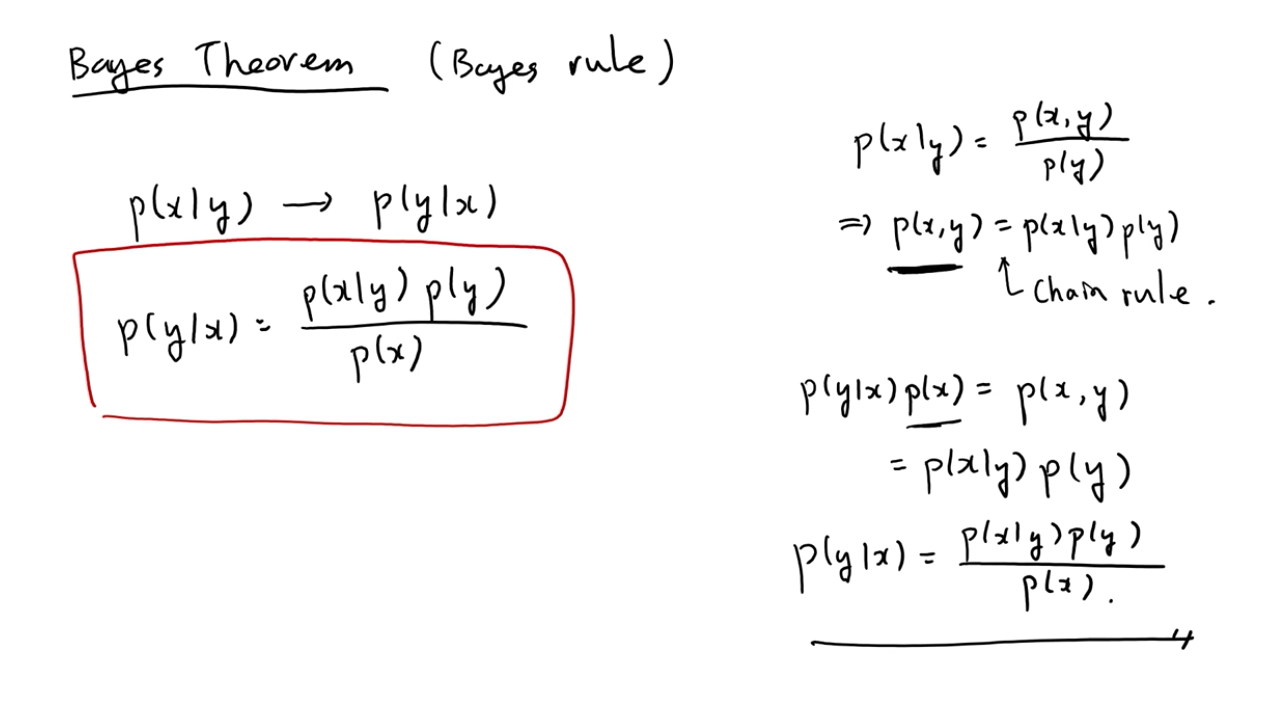 Bayes Theorem (Bayes rule)
p(x|y) → p(y|x)
p(y|x) = p(x|y) p(y) / p(x)
p(x|y) = p(x,y) / p(y)
⇒ p(x,y) = p(x|y) p(y)
↑ Chain rule.
p(y|x) p(x) = p(x,y)
= p(x|y) p(y)
p(y|x) = p(x|y) p(y) / p(x).